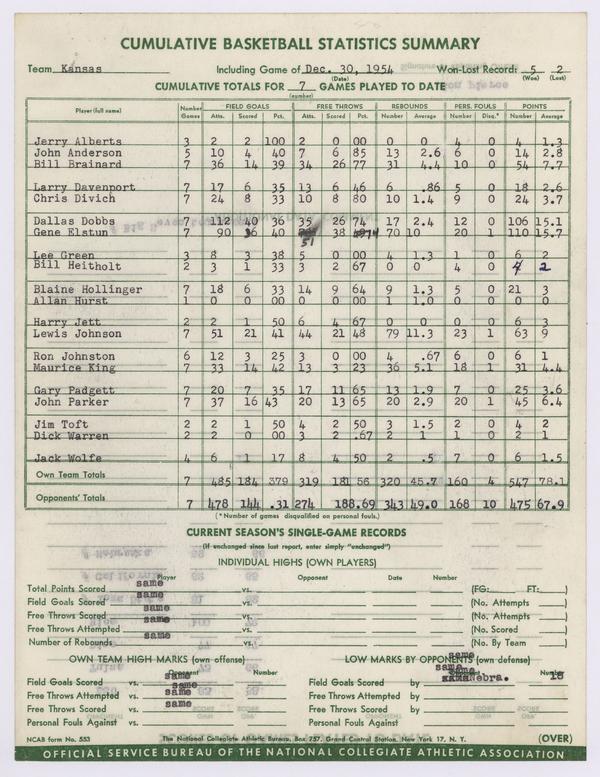 CUMULATIVE BASKETBALL STATISTICS SUMMARY
Team Kansas Including Game of Dec. 30, 1954 Won-Lost Record: 5 2
(Date) (Won) (Lost)
CUMULATIVE TOTALS FOR 7 GAMES PLAYED TO DATE
(number)
Player (full name) Number Games FIELD GOALS FREE THROWS REBOUNDS PERS. FOULS POINTS
Atts. Scored Pct. Atts. Scored Pct. Number Average Number Disq.* Number Average
Jerry Alberts 3 2 2 100 2 0 00 0 0 4 0 4 1.3
John Anderson 5 10 4 40 7 6 85 13 2.6 6 0 14 2.8
Bill Brainard 7 36 14 39 34 26 77 31 4.4 10 0 54 7.7
Larry Davenport 7 17 6 35 13 6 46 6 .86 5 0 18 2.6
Chris Divich 7 24 8 33 10 8 80 10 1.4 9 0 24 3.7
Dallas Dobbs 7 112 40 36 35 26 74 17 2.4 12 0 106 15.1
Gene Elstun 7 90 36 40 51 38 74 70 10 20 1 110 15.7
Lee Green 3 8 3 38 5 0 00 4 1.3 1 0 6 2
Bill Heitholt 2 3 1 33 3 2 67 0 0 4 0 4 2
Blaine Hollinger 7 18 6 33 14 9 64 9 1.3 5 0 21 3
Allan Hurst 1 0 0 00 0 0 00 1 1.0 0 0 0 0
Harry Jett 2 2 1 50 6 4 67 0 0 0 0 6 3
Lewis Johnson 7 51 21 41 44 21 48 79 11.3 23 1 63 9
Ron Johnston 6 12 3 25 3 0 00 4 .67 6 0 6 1
Maurice King 7 33 14 42 13 3 23 36 5.1 18 1 31 4.4
Gary Padgett 7 20 7 35 17 11 65 13 1.9 7 0 25 3.6
John Parker 7 37 16 43 20 13 65 20 2.9 20 1 45 6.4
Jim Toft 2 2 1 50 4 2 50 3 1.5 2 0 4 2
Dick Warren 2 2 0 00 3 2 .67 2 1 1 0 2 1
Jack Wolfe 4 6 1 17 8 4 50 2 .5 7 0 6 1.5
Own Team Totals 7 485 184 379 319 181 56 320 45.7 160 4 547 78.1
Opponents' Totals 7 478 144 .31 274 188 .69 343 49.0 168 10 475 67.9
(*Number of games disqualified on personal fouls.)
CURRENT SEASON'S SINGLE-GAME RECORDS
(If unchanged since last report, enter simply "unchanged")
INDIVIDUAL HIGHS (OWN PLAYERS)
Player Opponent Date Number
Total Points Scored same vs. (FG: FT: )
Field Goals Scored same vs. (No. Attempts )
Free Throws Scored same vs. (No. Attempts )
Free Throws Attempted same vs. (No. Scored )
Number of Rebounds same vs. (No. By Team )
OWN TEAM HIGH MARKS (own offense) LOW MARKS BY OPPONENTS (own defense)
Opponent Number same Number
Field Goals Scored vs. same Field Goals Scored by Nebra. 18
Free Throws Attempted vs. same Free Throws Attempted by
Free Throws Scored vs. same Free Throws Scored by
Personal Fouls Against vs. same Personal Fouls Against by
NCAB form No. 553 The National Collegiate Athletic Bureau, Box 757, Grand Central Station, New York 17, N. Y. (OVER)
OFFICIAL SERVICE BUREAU OF THE NATIONAL COLLEGIATE ATHLETIC ASSOCIATION